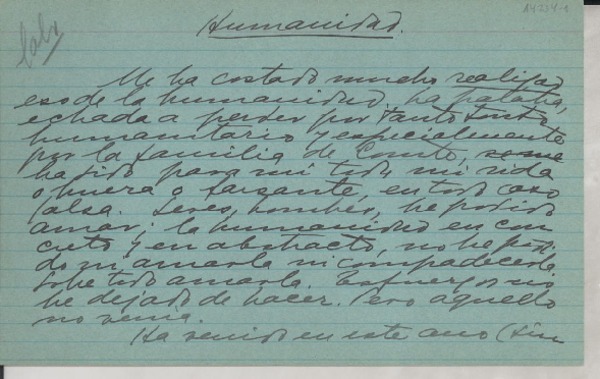 Humanidad.
Me ha costado mucho realizar
eso de la humanidad. La palabra,
echada a perder por tanto tonto
humanitario y especialmente
por la familia de Comte, se me
ha sido para mi toda mi vida
o huera o farsante, en todo caso
falsa. Seres, hombres, he podido
amar; la humanidad en con
creto y en abstracto, no he podi
do ni amarla ni compadecerla.
Sobre todo amarla. Esfuerzos no
he dejado de hacer. Pero aquello
no venía.
Ha venido en este año (sin